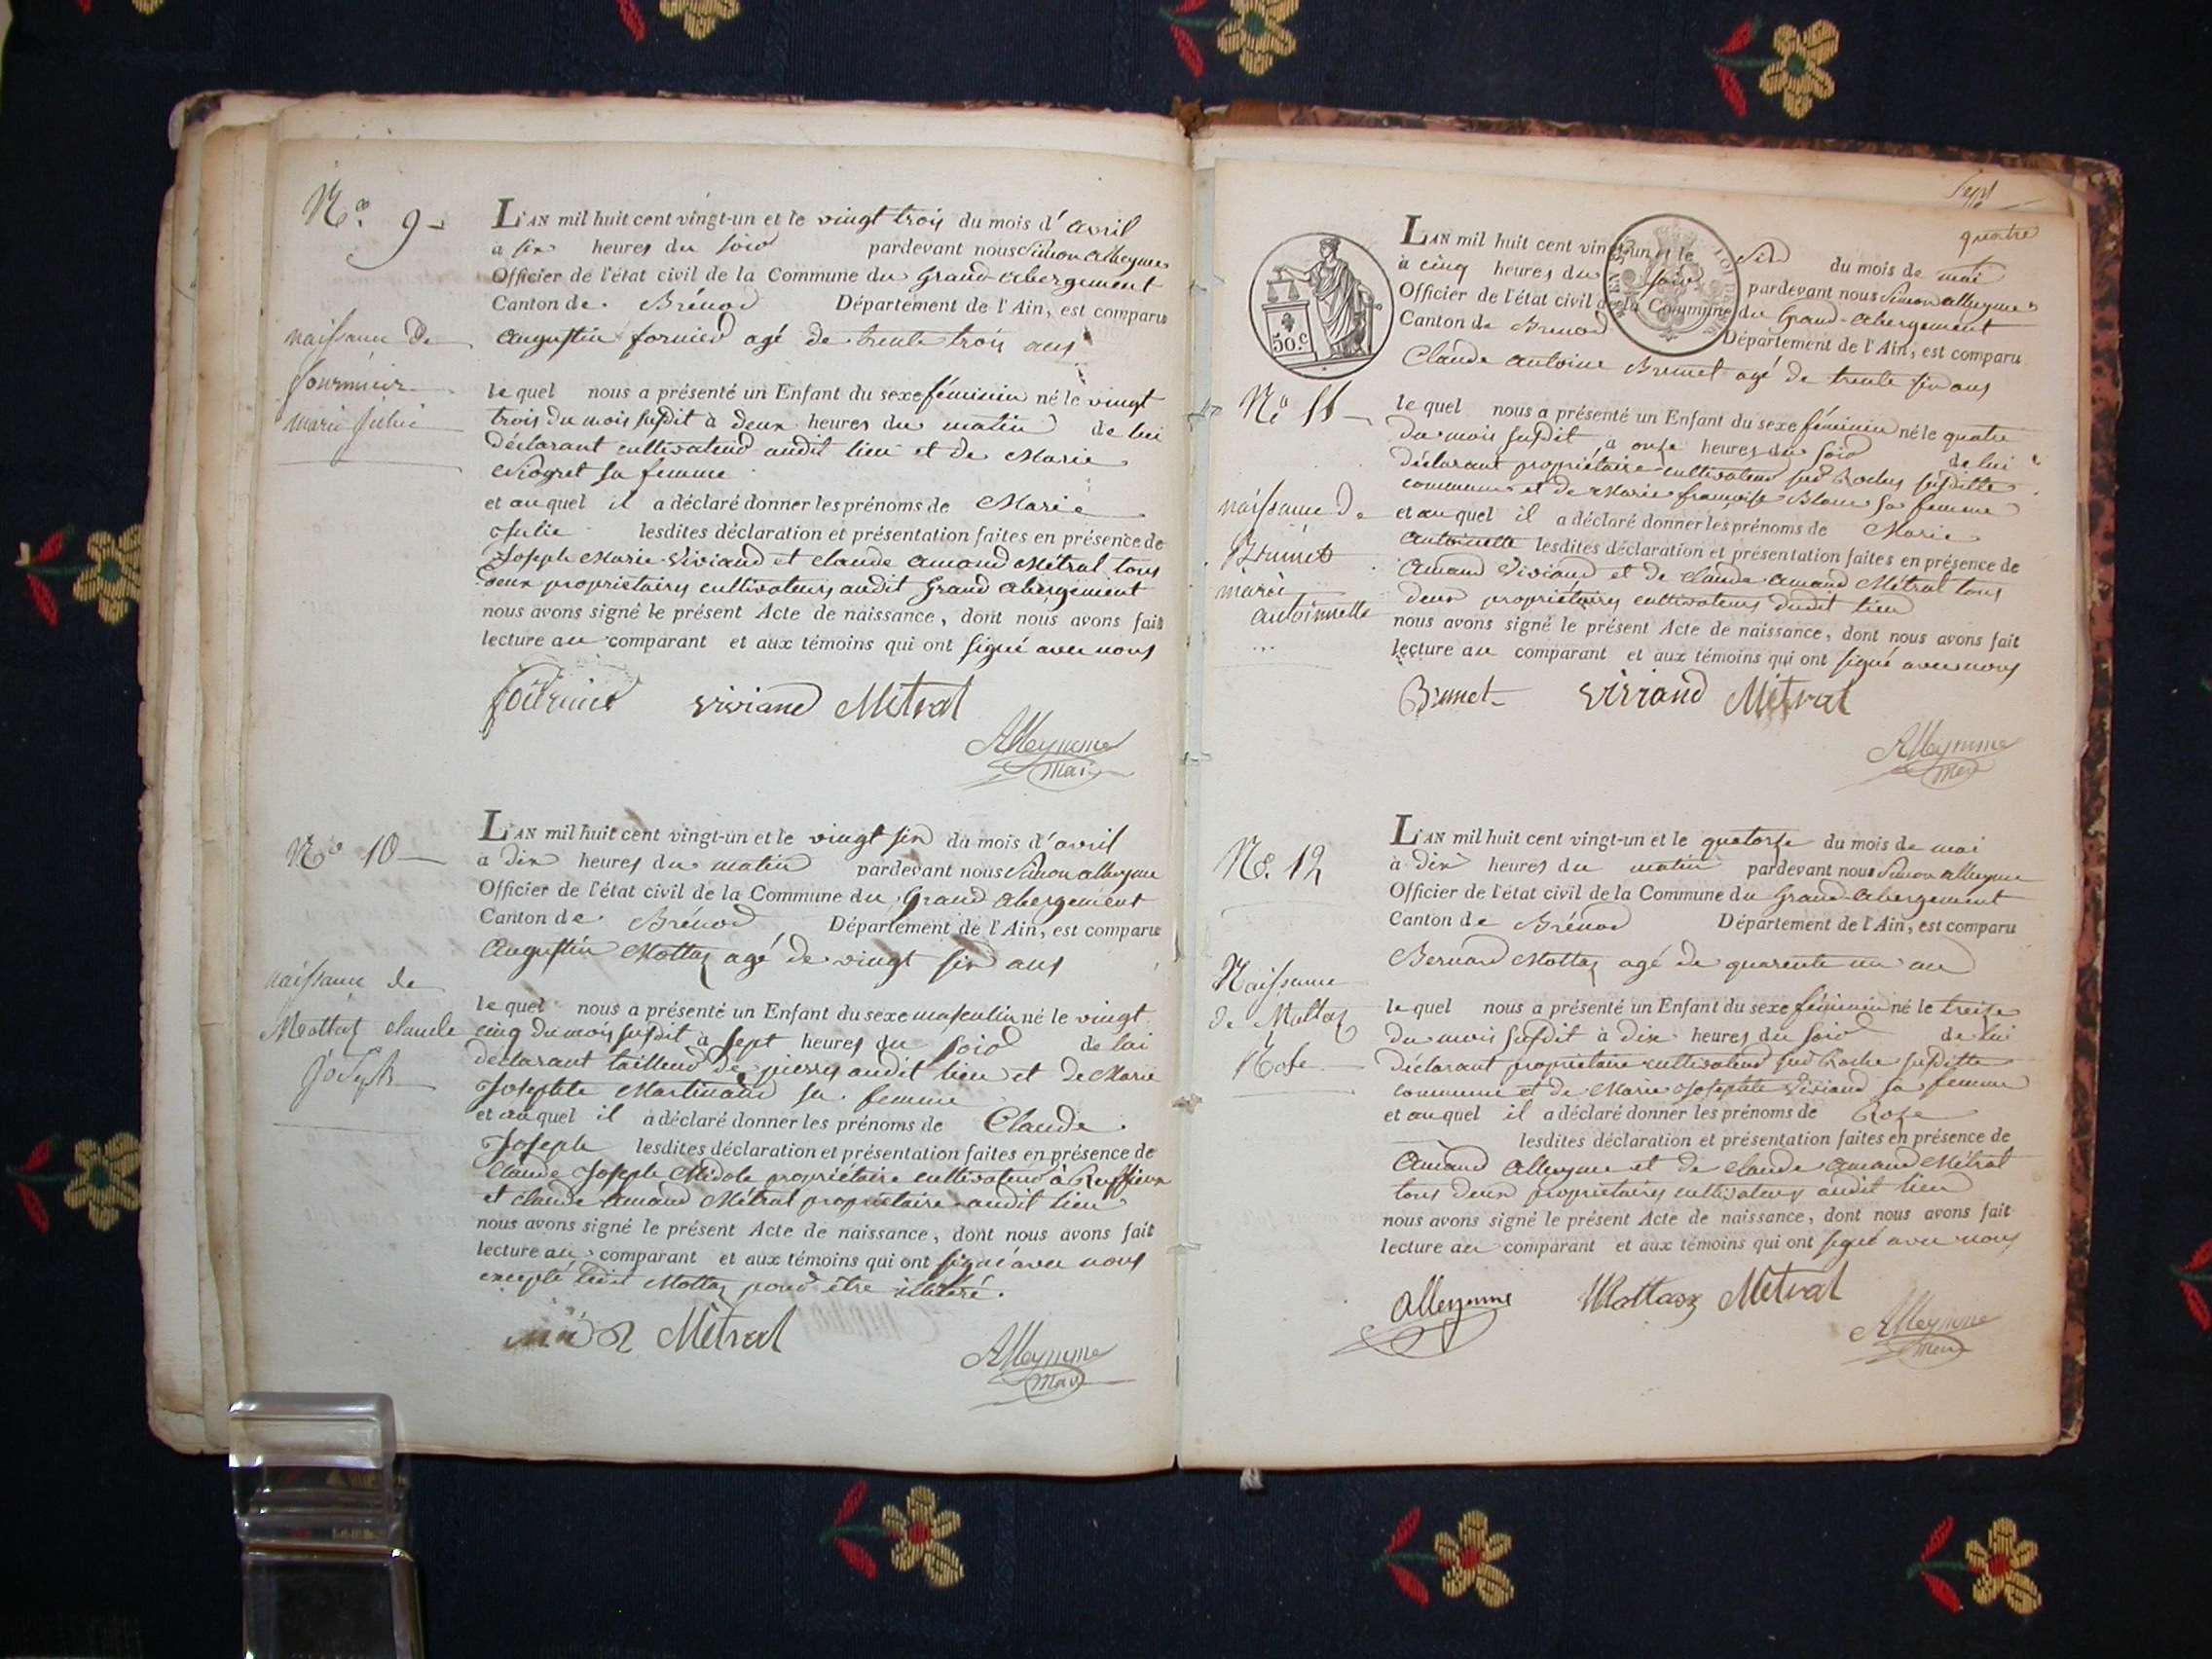 Nº 9
naissance de
fournier
marie julie
L'AN mil huit cent vingt-un et le vingt trois du mois d'avril
à six heures du soir pardevant nous Simon alleyme
Officier de l'état civil de la Commune du Grand abergement
Canton de Brénod Département de l'Ain, est comparu
Augustin fornier agé de trente trois ans
lequel nous a présenté un Enfant du sexe féminin né le vingt
trois du mois susdit à deux heures du matin de lui
déclarant cultivateur audit lieu et de Marie
sa femme
et auquel il a déclaré donner les prénoms de Marie
Julie lesdites déclaration et présentation faites en présence de
Joseph Marie Viviand et claude amand Métral tous
deux propriétaires cultivateurs audit Grand abergement
nous avons signé le présent Acte de naissance, dont nous avons fait
lecture au comparant et aux témoins qui ont signé avec nous
fournier viviand Métral
Alleymme
Maire
Nº 10
naissance de
Mottaz claude
joseph
L'AN mil huit cent vingt-un et le vingt six du mois d'avril
à dix heures du matin pardevant nous Simon alleyme
Officier de l'état civil de la Commune du Grand abergement
Canton de Brénod Département de l'Ain, est comparu
Augustin Mottaz agé de vingt six ans
lequel nous a présenté un Enfant du sexe masculin né le vingt
cinq du mois susdit à sept heures du soir de lui
déclarant tailleur de pierres audit lieu et de Marie
Josephte Martinand sa femme
et auquel il a déclaré donner les prénoms de Claude
Joseph lesdites déclaration et présentation faites en présence de
Claude Joseph Midole propriétaire cultivateur à Ruffieux
et claude amand Métral propriétaire audit lieu
nous avons signé le présent Acte de naissance, dont nous avons fait
lecture au comparant et aux témoins qui ont signé avec nous
excepté ledit Mottaz pour être illitéré.
Métral
Alleymme
Maire
sept
quatre
50.c
Nº 11
naissance de
Brunet
marie
antoinnette
L'AN mil huit cent vingt-un et le six du mois de mai
à cinq heures du soir pardevant nous Simon alleyme
Officier de l'état civil de la Commune du Grand-abergement
Canton de Brenod Département de l'Ain, est comparu
Claude antoine Brunet agé de trente six ans
lequel nous a présenté un Enfant du sexe féminin né le quatre
du mois susdit à onze heures du soir de lui
déclarant propriétaire cultivateur sur Roches susditte
commune et de Marie françoise Blanc sa femme
et auquel il a déclaré donner les prénoms de Marie
Antoinette lesdites déclaration et présentation faites en présence de
Amand Viviand et de claude amand Métral tous
deux propriétaires cultivateurs dudit lieu
nous avons signé le présent Acte de naissance, dont nous avons fait
lecture au comparant et aux témoins qui ont signé avec nous
Brunet viviand Métral
Alleymme
Maire
Nº. 12
Naissance
de Mottaz
Rose
L'AN mil huit cent vingt-un et le quatorze du mois de mai
à dix heures du matin pardevant nous Simon alleyme
Officier de l'état civil de la Commune du Grand-abergement
Canton de Brénod Département de l'Ain, est comparu
Bernard Mottaz agé de quarente un an
lequel nous a présenté un Enfant du sexe féminin né le treize
du mois susdit à dix heures du soir de lui
déclarant propriétaire cultivateur sur Roche susditte
commune et de Marie Josephte Viviand sa femme
et auquel il a déclaré donner les prénoms de Roze
lesdites déclaration et présentation faites en présence de
Amand alleyme et de claude amand Métral
tous deux propriétaires cultivateurs audit lieu
nous avons signé le présent Acte de naissance, dont nous avons fait
lecture au comparant et aux témoins qui ont signé avec nous
alleymme Mottaz Métral
Alleymme
Maire